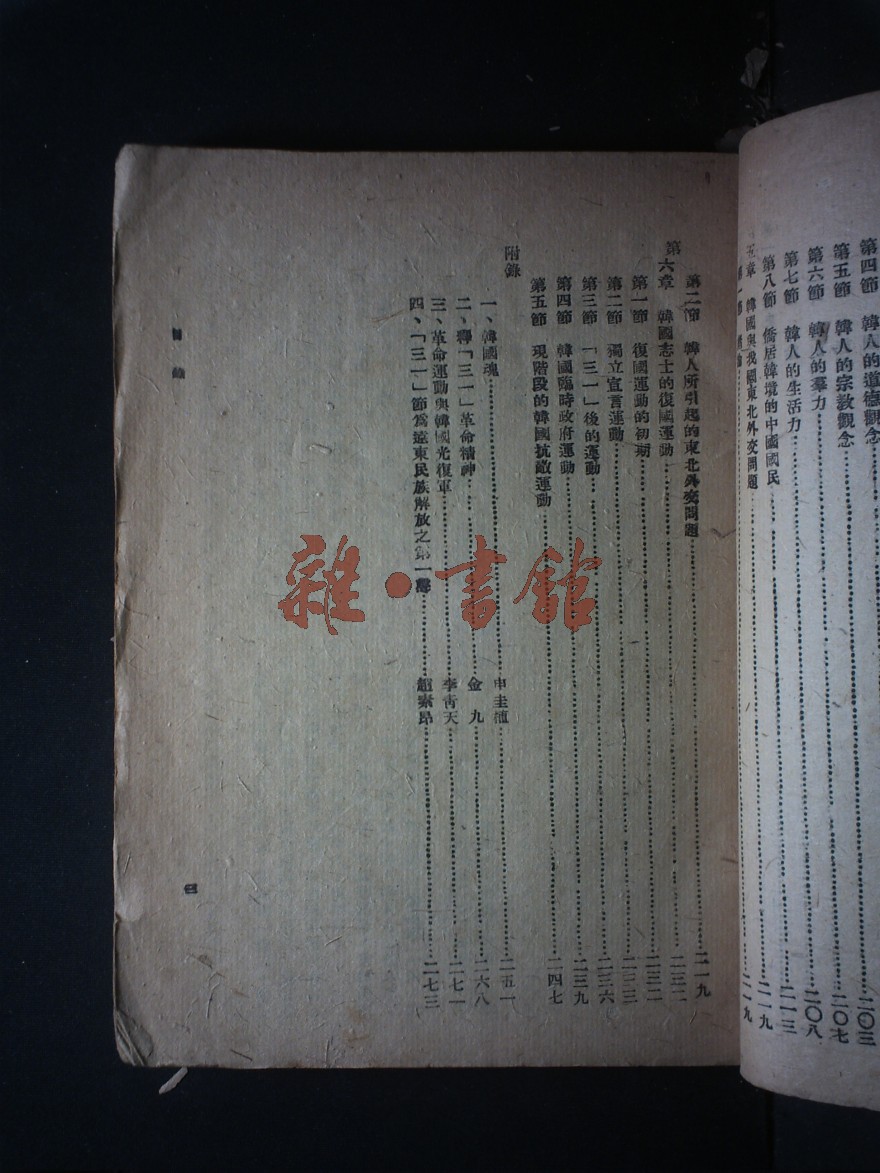 第四節 韓人的道德觀念……二〇三
第五節 韓人的宗教觀念……二〇七
第六節 韓人的羣力……二〇八
第七節 韓人的生活力……二一三
第八節 僑居韓境的中國國民……二一九
五章 韓國與我國東北外交問題……二一九
第一節
第二節 韓人所引起的東北外交問題……二一九
第六章 韓國志士的復國運動……二三二
第一節 復國運動的初期……二三二
第二節 獨立宣言運動……二三三
第三節 「三一」後的運動……二三六
第四節 韓國臨時政府運動……二三九
第五節 現階段的韓國抗敵運動……二四七
附錄
一、韓國魂……申圭植……二五一
二、釋「三一」革命精神……金 九……二六八
三、革命運動與韓國光復軍……李青天……二七一
四、「三一」節為遠東民族解放之第一聲……趙素昂……二七三
目錄
三
雜·書館